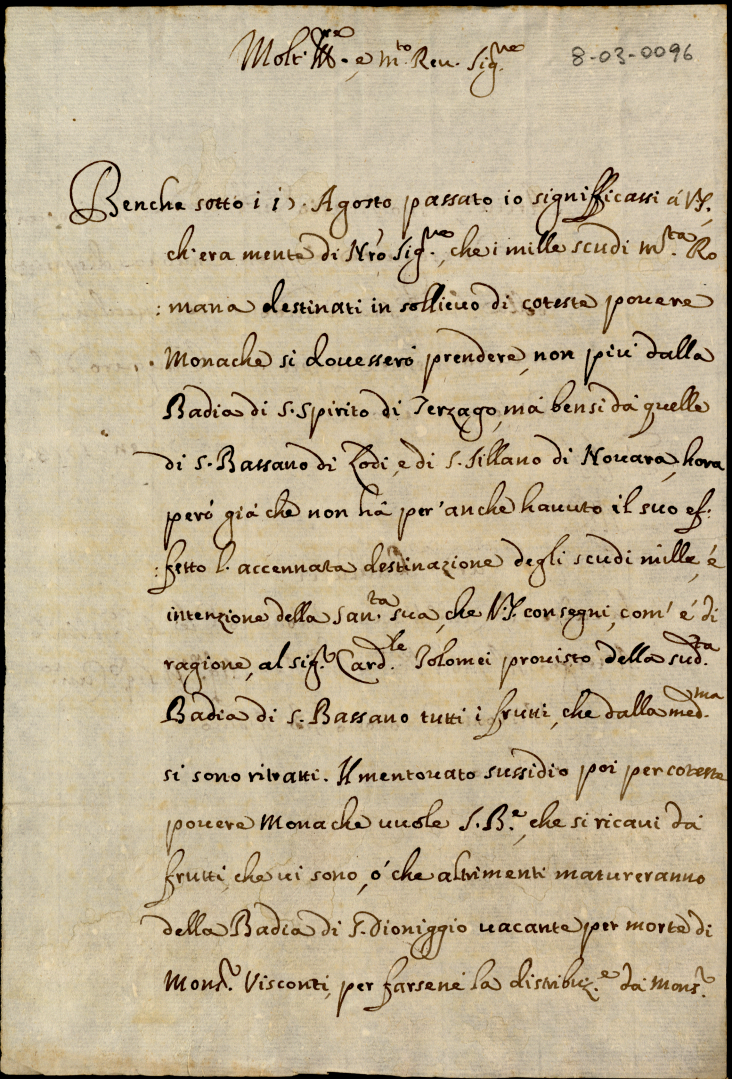 Molt' Ill.re e m.to Rev. Sig.re
8-03-0096
Benche sotto i 15. Agosto passato io significassi á V.S.,
ch'era mente di N'ro Sig.re, che i mille scudi m.ta Ro
:mana destinati in sollievo di coteste povere
Monache si dovessero prendere, non piú dalla
Badia di S. Spirito di Terzago, má bensi dá quelle
di S. Bassano di Lodi, e di S. Sillano di Novara, hora
peró giá che non há per'anche havuto il suo ef:
:fetto l'accennata destinazione degli scudi mille, é
intenzione della San.ta sua, che V.S. consegni, com' é di
ragione, al sig.r Card.le Tolomei provisto della sud.ta
Badia di S. Bassano tutti i frutti, che dalla med.ma
si sono ritratti. Il mentovato sussidio poi per coteste
povere Monache vuole S. B.e, che si ricavi dá
frutti, che vi sono, ó che altrimenti matureranno
della Badia di S. Dioniggio vacante per morte di
Mons.r Visconti, per farsene la distribuz.e dá Mons.r